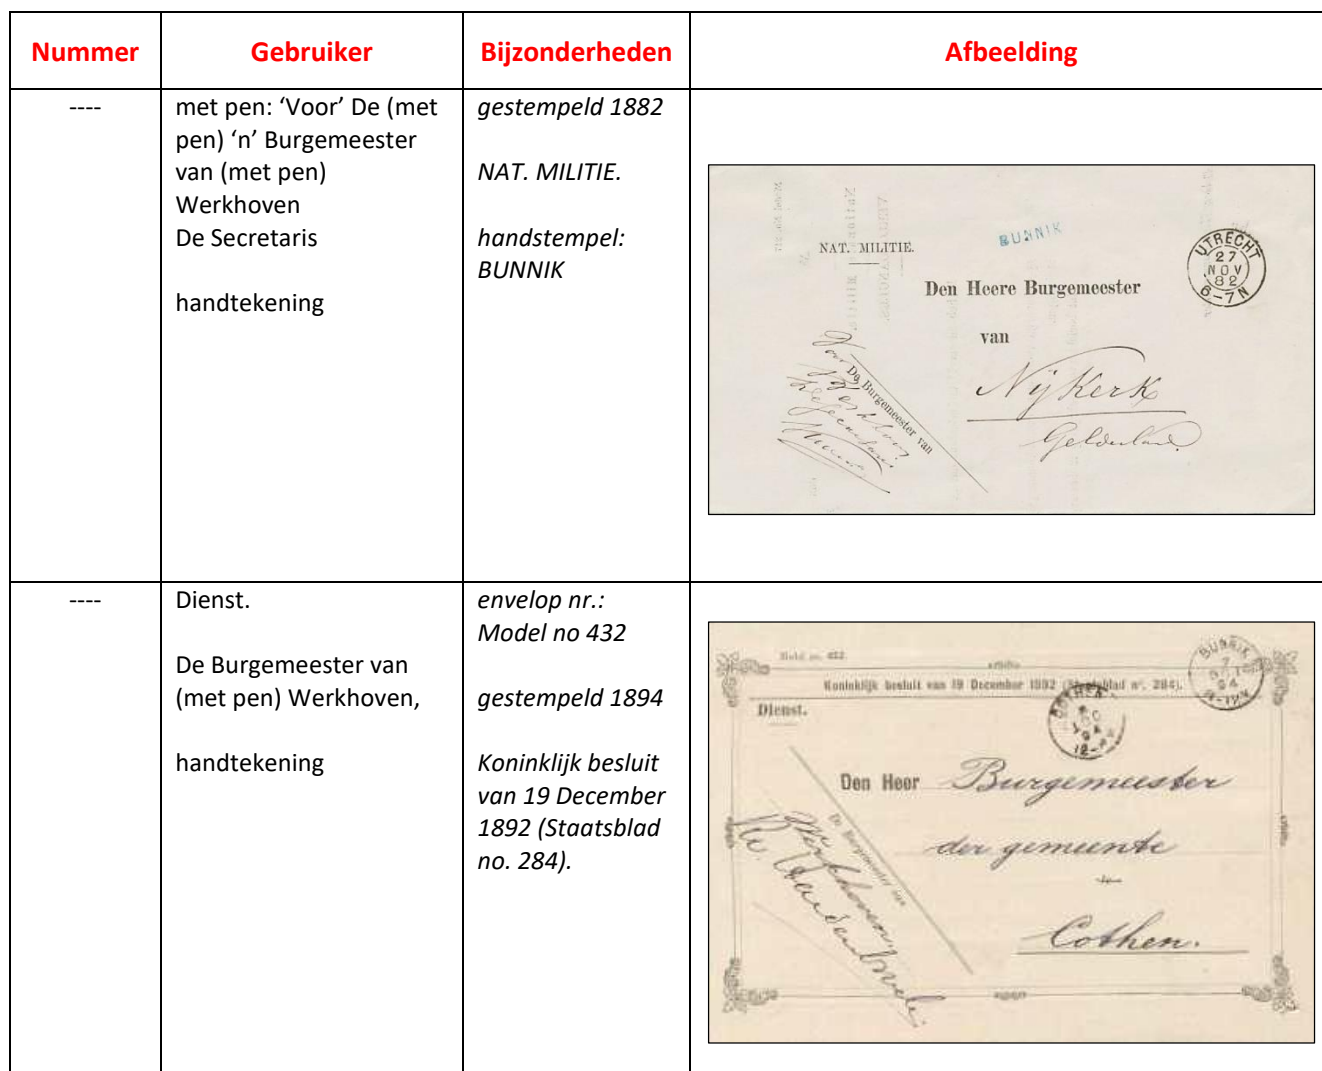 Nummer Gebruiker Bijzonderheden Afbeelding
---- 
met pen: ‘Voor’ De (met
pen) ‘n’ Burgemeester
van (met pen)
Werkhoven
De Secretaris
handtekening
gestempeld 1882
NAT. MILITIE.
handstempel:
BUNNIK
NAT. MILITIE.
BUNNIK
UTRECHT
27
NOV
82
6-7N
Den Heere Burgemeester
van
Nijkerk
Gelderland.
Voor
De Burgemeester van
Werkhoven
De Secretaris
----
Dienst.
De Burgemeester van
(met pen) Werkhoven,
handtekening
envelop nr.:
Model no 432
gestempeld 1894
Koninklijk besluit
van 19 December
1892 (Staatsblad
no. 284).
Model no. 432.
Koninklijk besluit van 19 December 1892 (Staatsblad no. 284).
BUNNIK
7
94
Dienst.
COTHEN
94
Den Heer Burgemeester
der gemeente
Cothen.
De Burgemeester van
Werkhoven,